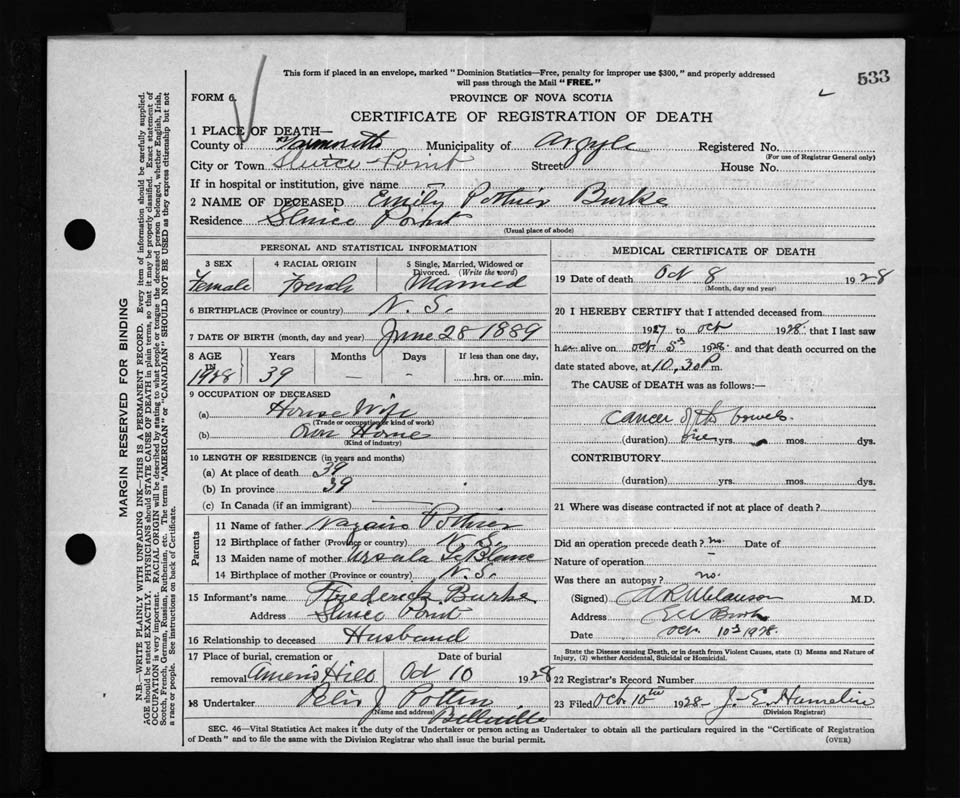 This form if placed in an envelope, marked "Dominion Statistics—Free, penalty for improper use $300," and properly addressed
will pass through the Mail "FREE."
533
FORM 6.
PROVINCE OF NOVA SCOTIA
CERTIFICATE OF REGISTRATION OF DEATH
1 PLACE OF DEATH—
County of Yarmouth Municipality of Argyle Registered No.
(For use of Registrar General only)
City or Town Sluice Point Street House No.
If in hospital or institution, give name
2 NAME OF DECEASED Emily Pothier Burke
Residence Sluice Point
(Usual place of abode)
PERSONAL AND STATISTICAL INFORMATION
3 SEX Female
4 RACIAL ORIGIN French
5 Single, Married, Widowed or Divorced. (Write the word) Married
6 BIRTHPLACE (Province or country) N.S.
7 DATE OF BIRTH (month, day and year) June 28 1889
8 AGE Years Months Days If less than one day,
1928 39 — — hrs. or min.
9 OCCUPATION OF DECEASED
(a) House Wife
(Trade or occupation or kind of work)
(b) Own Home
(Kind of industry)
10 LENGTH OF RESIDENCE (in years and months)
(a) At place of death 39
(b) In province 39
(c) In Canada (if an immigrant)
Parents
11 Name of father Pothier
12 Birthplace of father (Province or country) N.S.
13 Maiden name of mother Ursula LeBlanc
14 Birthplace of mother (Province or country) N.S.
15 Informant's name Frederick Burke
Address Sluice Point
16 Relationship to deceased Husband
17 Place of burial, cremation or removal Hill Date of burial Oct 10 1928
18 Undertaker J
(Name and address)
Belleville
MEDICAL CERTIFICATE OF DEATH
19 Date of death Oct 8 1928
(Month, day and year)
20 I HEREBY CERTIFY that I attended deceased from
1927 to Oct 1928. that I last saw
her alive on Oct 5th 1928. and that death occurred on the
date stated above, at 10.30 P m.
The CAUSE of DEATH was as follows:
Cancer of the bowels.
(duration) one yrs. mos. dys.
CONTRIBUTORY
(duration) yrs. mos. dys.
21 Where was disease contracted if not at place of death?
Did an operation precede death? no. Date of
Nature of operation —
Was there an autopsy? no.
(Signed) M.D.
Address
Date Oct. 10th 1928.
State the Disease causing Death, or in death from Violent Causes, state (1) Means and Nature of
Injury, (2) whether Accidental, Suicidal or Homicidal.
22 Registrar's Record Number
23 Filed Oct. 10th 1928 J. E. Hamelin
(Division Registrar)
SEC. 46—Vital Statistics Act makes it the duty of the Undertaker or person acting as Undertaker to obtain all the particulars required in the "Certificate of Registration
of Death" and to file the same with the Division Registrar who shall issue the burial permit.
(OVER)
MARGIN RESERVED FOR BINDING
N.B.—WRITE PLAINLY WITH UNFADING INK—THIS IS A PERMANENT RECORD. Every item of information should be carefully supplied.
AGE should be stated EXACTLY. PHYSICIANS should STATE CAUSE OF DEATH in plain terms, so that it may be properly classified. Exact statement of
OCCUPATION is very important. RACIAL ORIGIN will be described by stating to what people or tongue the deceased person belonged, whether English, Irish,
Scotch, French, German, Russian, Ruthenian, etc. The terms "AMERICAN" or "CANADIAN" SHOULD NOT BE USED as they express citizenship but not
a race or people. See instructions on back of Certificate.